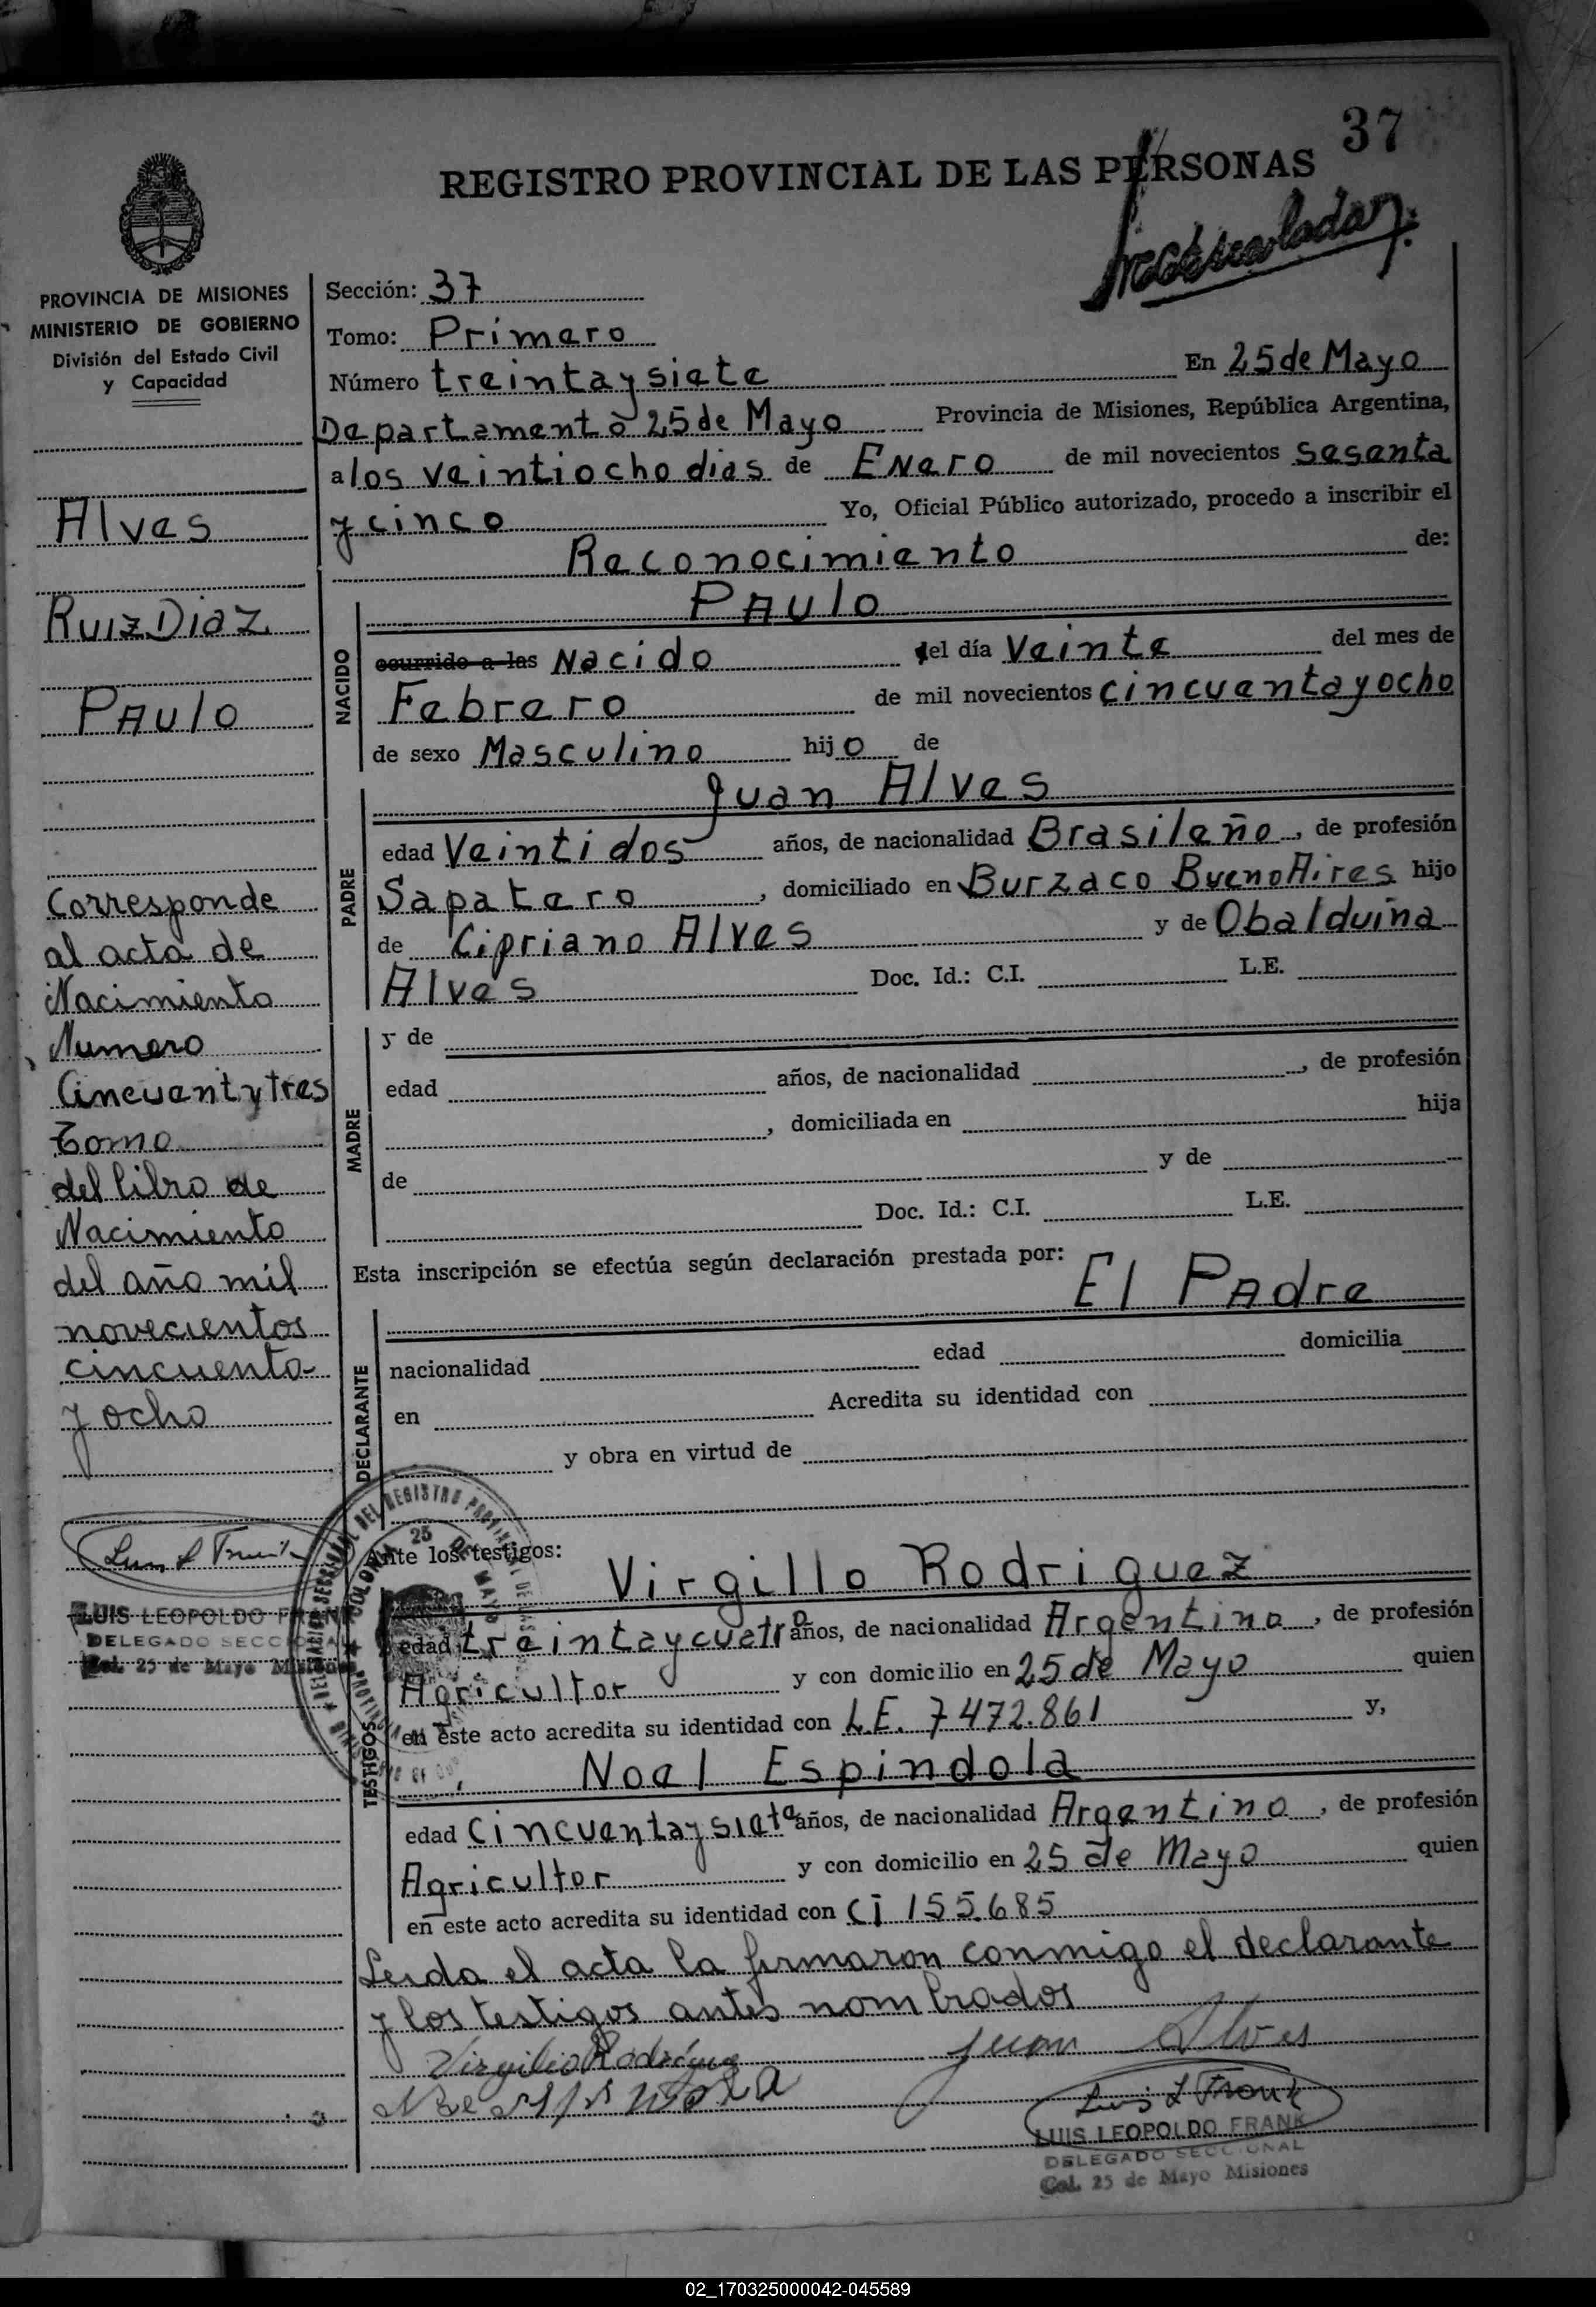 37
REGISTRO PROVINCIAL DE LAS PERSONAS
PROVINCIA DE MISIONES
MINISTERIO DE GOBIERNO
División del Estado Civil
y Capacidad
Alves
Ruiz Diaz
PAulo
Corresponde
al acta de
Nacimiento
Numero
Cincuent y tres
Tomo
del libro de
Nacimiento
del año mil
novecientos
cincuenta
y ocho
Luis L Frank
LUIS LEOPOLDO FRANK
DELEGADO SECCIONAL
Col. 25 de Mayo Misiones
Sección: 37
Tomo: Primero
Número treinta y siete En 25 de Mayo
Departamento 25 de Mayo Provincia de Misiones, República Argentina,
a los veintiocho dias de ENero de mil novecientos sesenta
y cinco Yo, Oficial Público autorizado, procedo a inscribir el
Reconocimiento de:
NACIDO
PAulo
ocurrido a las Nacido el día Veinte del mes de
Febrero de mil novecientos cincuenta y ocho
de sexo Masculino hijo de
PADRE
Juan Alves
edad Veintidos años, de nacionalidad Brasileño, de profesión
Sapatero, domiciliado en Burzaco Bueno Aires hijo
de Cipriano Alves y de Obalduina
Alves Doc. Id.: C.I. L.E.
MADRE
y de
edad años, de nacionalidad , de profesión
, domiciliada en hija
de y de
Doc. Id.: C.I. L.E.
Esta inscripción se efectúa según declaración prestada por:
El PAdre
DECLARANTE
nacionalidad edad domicilia
en Acredita su identidad con
y obra en virtud de
COLONIA 25 DE MAYO
TESTIGOS
Ante los testigos:
Virgillo Rodriguez
edad treinta y cuatro años, de nacionalidad Argentino, de profesión
Agricultor y con domicilio en 25 de Mayo quien
en este acto acredita su identidad con L.E. 7472.861 y,
Noel Espindola
edad Cincuenta y siete años, de nacionalidad Argentino, de profesión
Agricultor y con domicilio en 25 de Mayo quien
en este acto acredita su identidad con CI 155.685
Leida el acta la firmaron conmigo el declarante
y los testigos antes nombrados
Virgilio Rodríguez Juan Alves
Luis L Frank
LUIS LEOPOLDO FRANK
DELEGADO SECCIONAL
Col. 25 de Mayo Misiones
02_170325000042-045589